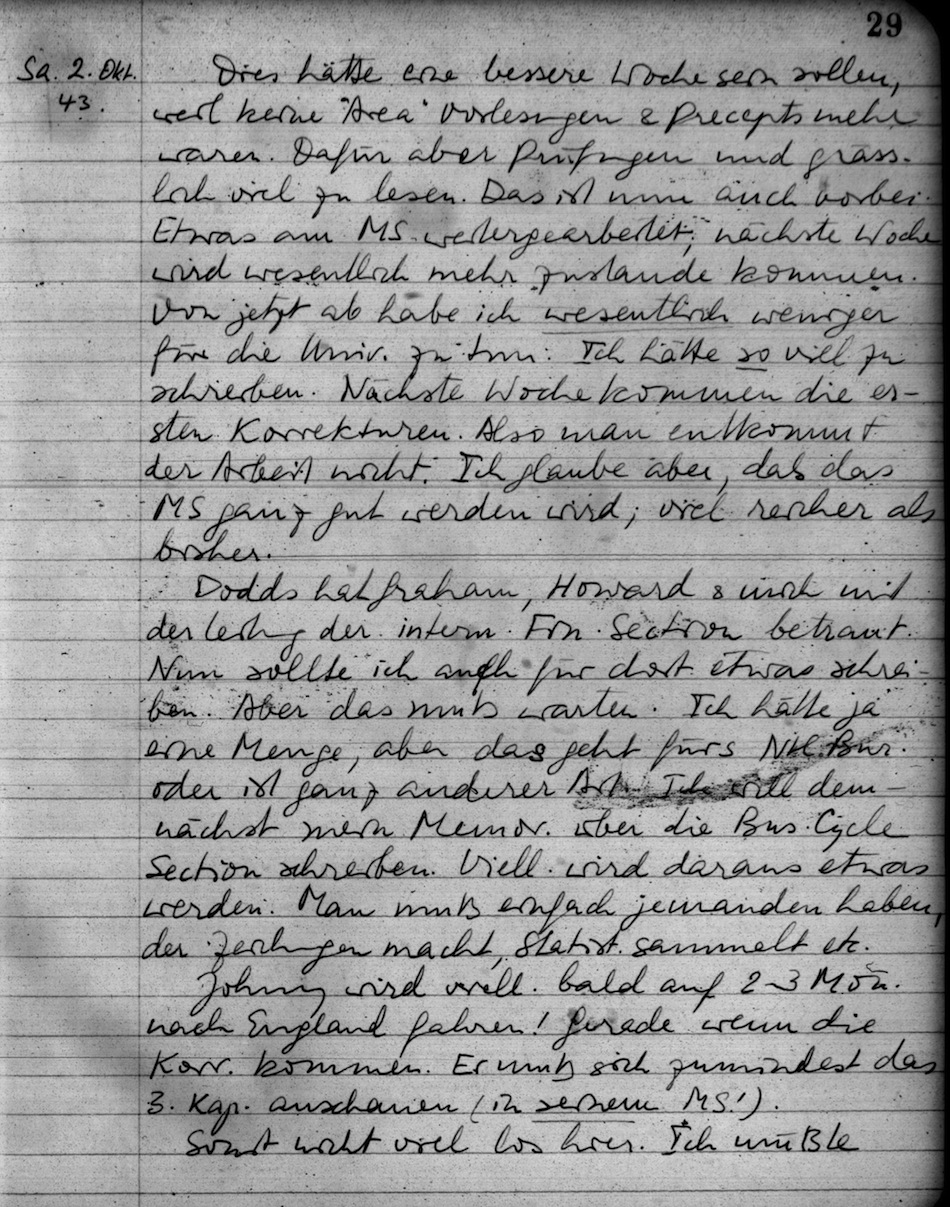 29
Sa. 2. Okt.
43.
Dies hätte eine bessere Woche sein sollen,
weil keine "Area" Vorlesungen & Precepts mehr
waren. Dafür aber Prüfungen und gräss-
lich viel zu lesen. Das ist nun auch vorbei.
Etwas am MS weitergearbeitet; nächste Woche
wird wesentlich mehr zustande kommen.
Von jetzt ab habe ich wesentlich weniger
für die Univ. zu tun. Ich hätte so viel zu
schreiben. Nächste Woche kommen die er-
sten Korrekturen. Also man entkommt
der Arbeit nicht. Ich glaube aber, daß das
MS ganz gut werden wird; viel reicher als
bisher.
Dodds hat Graham, Howard & mich mit
der Leitung der intern. Fin. Section betraut.
Nun sollte ich auch für dort etwas schrei-
ben. Aber das muß warten. Ich hätte ja
eine Menge, aber das geht fürs Bur.
oder ist ganz anderer Art. Ich will dem-
nächst mein Memor. über die Bus. Cycle
Section schreiben. Viell. wird daraus etwas
werden. Man muß einfach jemanden haben,
der Zeichungen macht, Statist. sammelt etc.
Johnny wird viell. bald auf 2-3 Mon.
nach England fahren! Gerade wenn die
Korr. kommen. Er muß sich zumindest das
3. Kap. anschauen (in seinem MS!).
Sonst nicht viel los hier. Ich müßte